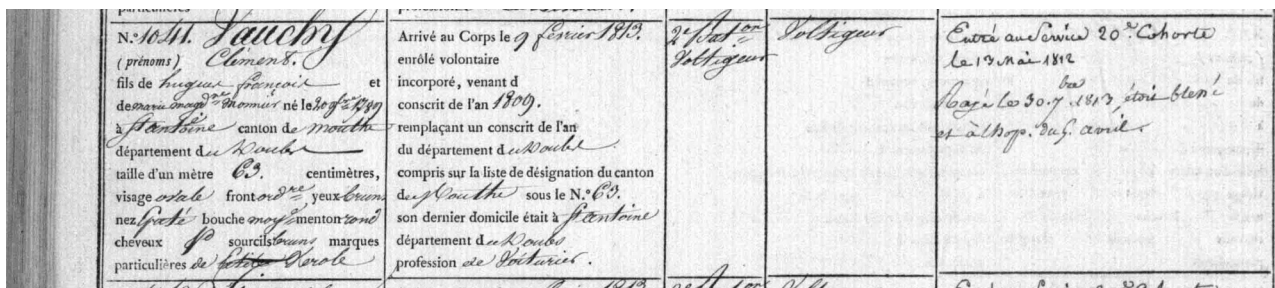 particulières
N.º 1041. Vauchy
(prénoms) Clément.
fils de hugues françois et
de marie magd.ne monnier né le 20 9.bre 1789
à St antoine canton de mouthe
département du Doubs
taille d'un mètre 63. centimètres,
visage ovale front ord.re yeux bruns
nez gaté bouche moy.e menton rond
cheveux sourcils bruns marques
particulières de petite verole
Arrivé au Corps le 9 février 1813.
enrôlé volontaire
incorporé, venant d
conscrit de l'an 1809.
remplaçant un conscrit de l'an
du département du Doubs
compris sur la liste de désignation du canton
de Mouthe sous le N.º 63.
son dernier domicile était à St antoine
département du Doubs
profession de Voiturier.
2.e Bat.on
Voltigeur
Voltigeur
Entré au Service 20.e Cohorte
le 13 Mai 1812
Rayé le 30. 7.bre 1813, étoit blessé
et à l'hop. du 5. avril.